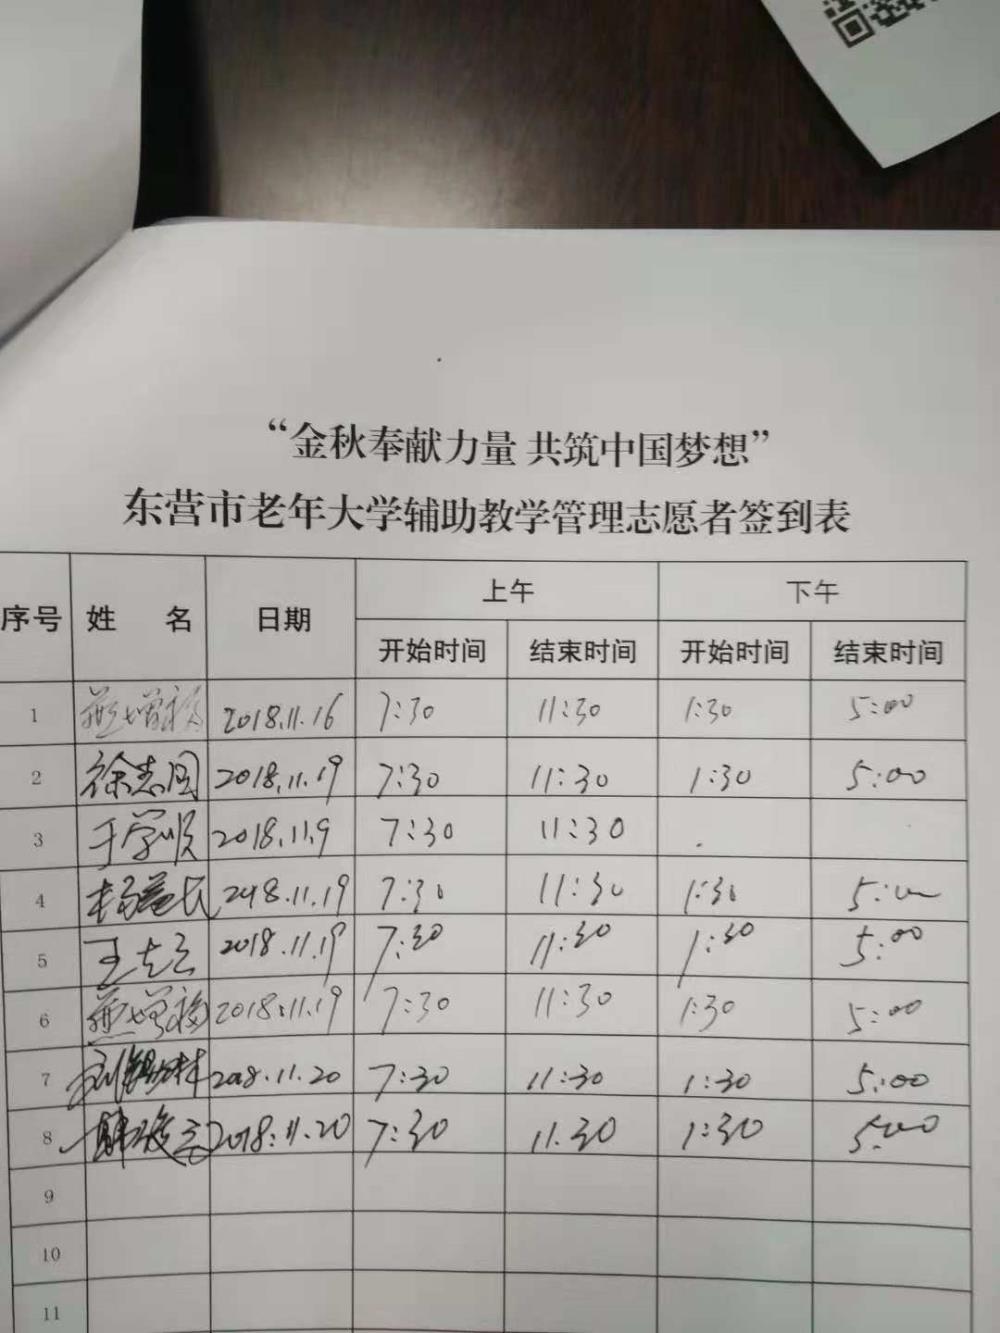 “金秋奉献力量 共筑中国梦想”
东营市老年大学辅助教学管理志愿者签到表
序号 姓 名 日期 上午 下午
开始时间 结束时间 开始时间 结束时间
1 2018.11.16 7:30 11:30 1:30 5:00
2 徐志国 2018.11.19 7:30 11:30 1:30 5:00
3 于学顺 2018.11.9 7:30 11:30
4 杨益民 2018.11.19 7:30 11:30 1:30 5:00
5 2018.11.19 7:30 11:30 1:30 5:00
6 2018.11.19 7:30 11:30 1:30 5:00
7 2018.11.20 7:30 11:30 1:30 5:00
8 2018.11.20 7:30 11.30 1:30 5:00
9
10
11